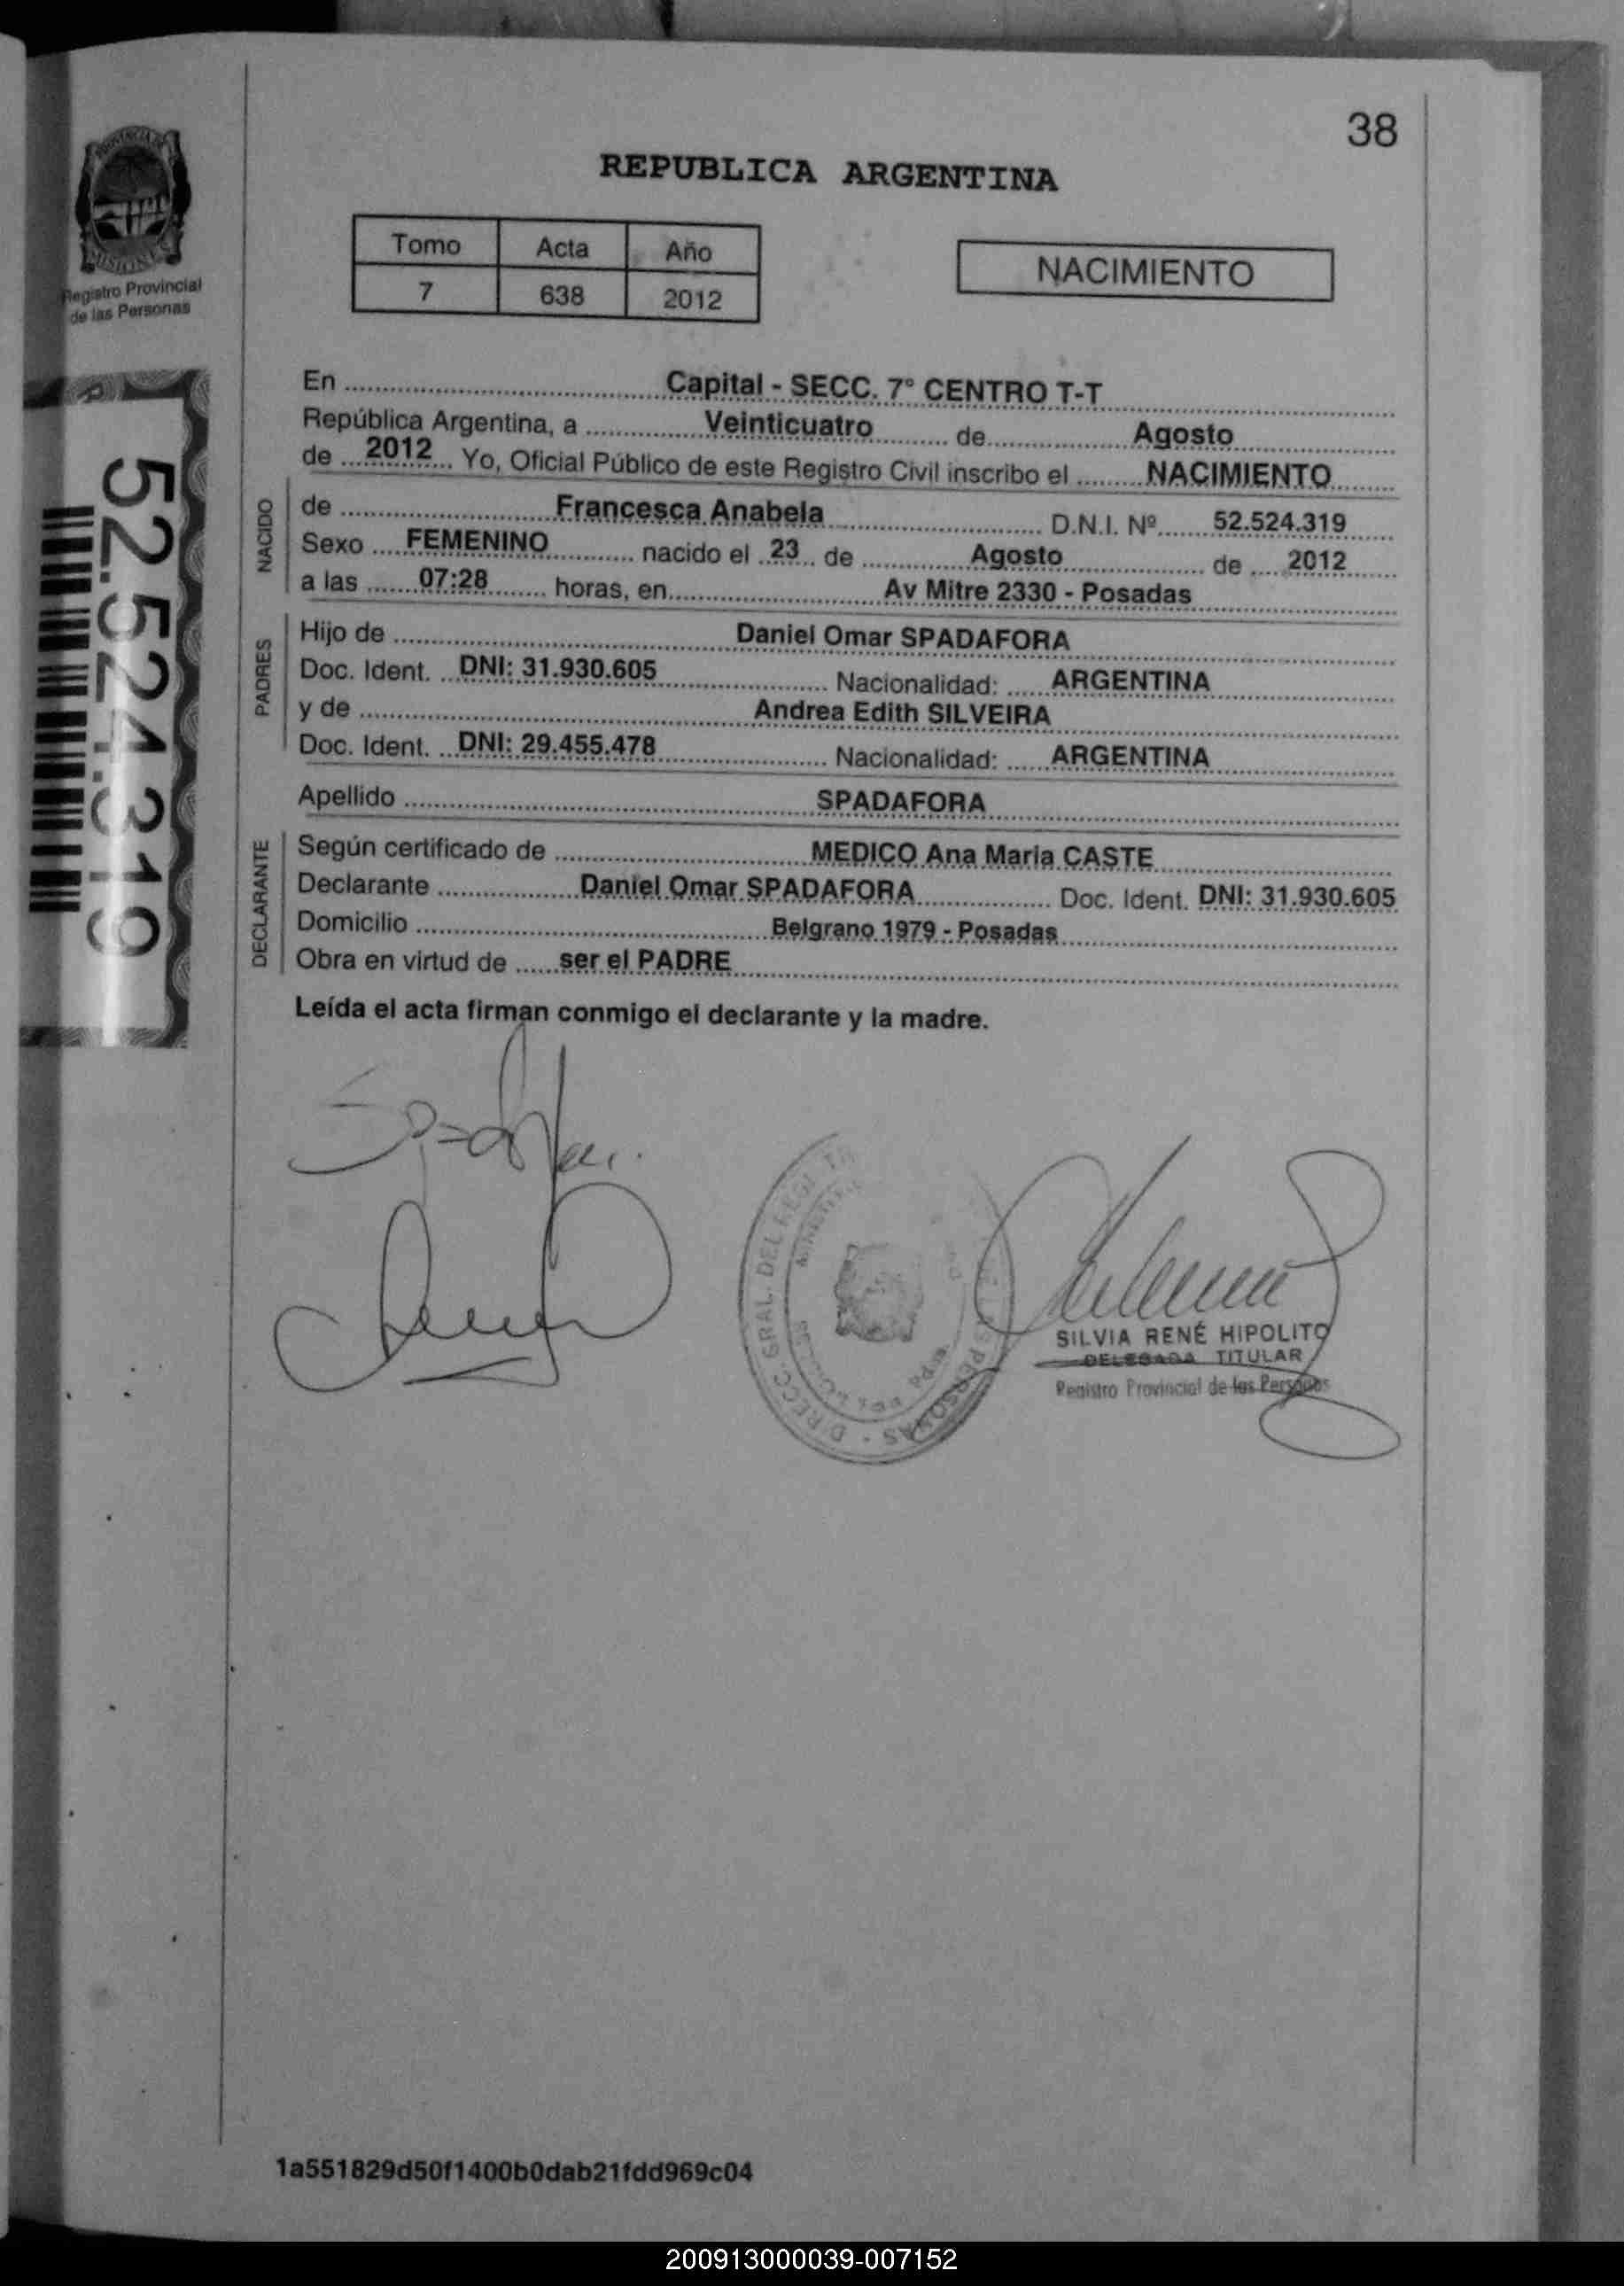 38
REPUBLICA ARGENTINA
PROVINCIA DE
MISIONES
Registro Provincial
de las Personas
Tomo Acta Año
7 638 2012
NACIMIENTO
52.524.319
En Capital - SECC. 7° CENTRO T-T
República Argentina, a Veinticuatro de Agosto
de 2012 Yo, Oficial Público de este Registro Civil inscribo el NACIMIENTO
NACIDO
de Francesca Anabela D.N.I. Nº 52.524.319
Sexo FEMENINO nacido el 23 de Agosto de 2012
a las 07:28 horas, en Av Mitre 2330 - Posadas
PADRES
Hijo de Daniel Omar SPADAFORA
Doc. Ident. DNI: 31.930.605 Nacionalidad: ARGENTINA
y de Andrea Edith SILVEIRA
Doc. Ident. DNI: 29.455.478 Nacionalidad: ARGENTINA
Apellido SPADAFORA
DECLARANTE
Según certificado de MEDICO Ana Maria CASTE
Declarante Daniel Omar SPADAFORA Doc. Ident. DNI: 31.930.605
Domicilio Belgrano 1979 - Posadas
Obra en virtud de ser el PADRE
Leída el acta firman conmigo el declarante y la madre.
DIRECC. GRAL. DEL REGI
PERSONAS
SILVIA RENÉ HIPOLITO
DELEGADA TITULAR
Registro Provincial de las Personas
1a551829d50f1400b0dab21fdd969c04
200913000039-007152